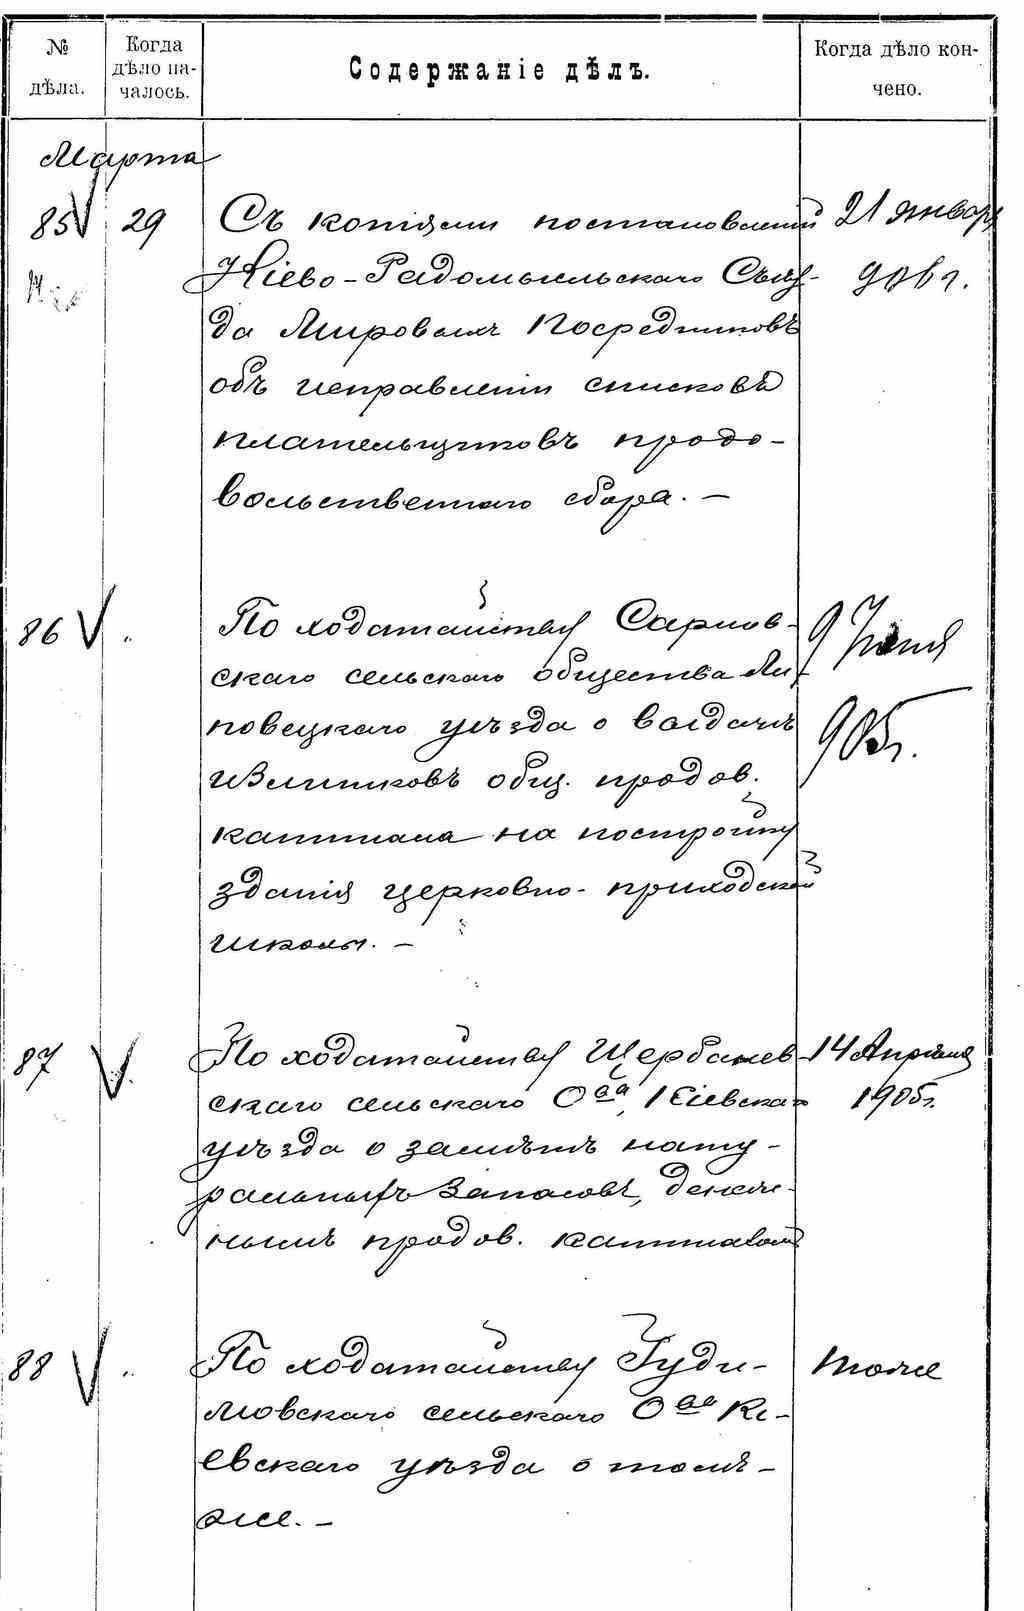 № дѣла.
Когда дѣло на-
чалось.
Содержаніе дѣлъ.
Когда дѣло кон-
чено.
Марта
85 V 29 Съ копіями постановленій 21 января
Кіево-Радомысльскаго Съѣз- 906 г.
да Мировыхъ Посредниковъ
объ исправленіи списковъ
плательщиковъ продо-
вольственнаго сбора. —
86 V " По ходатайству Сарнов- 9 Іюня
скаго сельскаго общества Ли-
повецкаго уѣзда о выдачѣ 905 г.
излишковъ общ. продов.
капитала на постройку
зданія церковно-приходской
школы. —
87 V " По ходатайству Щербаков- 14 Апрѣля
скаго сельскаго О-ва, Кіевскаго 1905 г.
уѣзда о замѣнѣ нату-
ральныхъ запасовъ, денеж-
нымъ продов. капиталомъ
88 V " По ходатайству Гуди- тоже
мовскаго сельскаго О-ва Кі-
евскаго уѣзда о томъ-
же. —